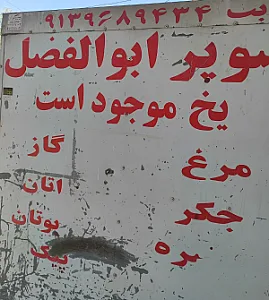 ۹۱۳۹۶۸۹۴۳۴
سوپر ابوالفضل
یخ موجود است
مرغ
جگر
بره
گاز
اتان
بوتان
پیک